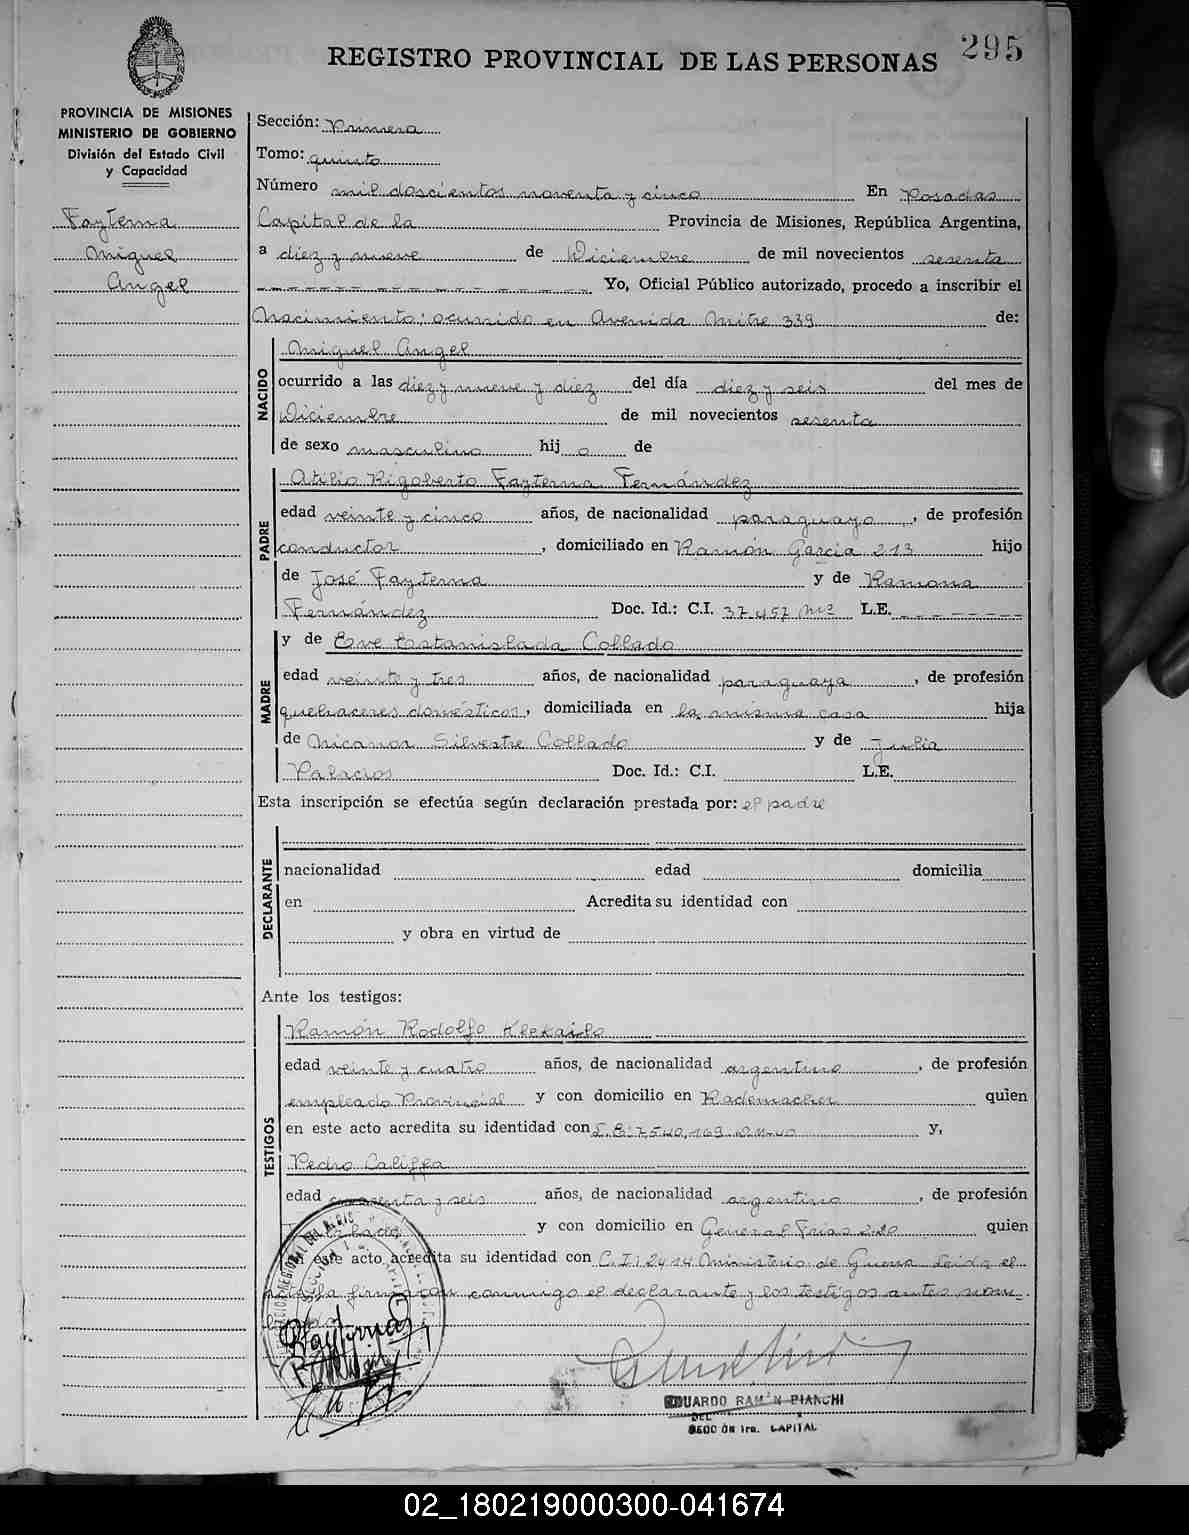 295
REGISTRO PROVINCIAL DE LAS PERSONAS
PROVINCIA DE MISIONES
MINISTERIO DE GOBIERNO
División del Estado Civil
y Capacidad
Fayterna
Miguel
Angel
Sección: Primera
Tomo: quinto
Número mil doscientos noventa y cinco En Posadas
Capital de la Provincia de Misiones, República Argentina,
a diez y nueve de Diciembre de mil novecientos sesenta
Yo, Oficial Público autorizado, procedo a inscribir el
Nacimiento: ocurrido en Avenida Mitre 339 de:
NACIDO
Miguel Angel
ocurrido a las diez y nueve y diez del día diez y seis del mes de
Diciembre de mil novecientos sesenta
de sexo masculino hij o de
PADRE
Atilio Rigoberto Fayterna Fernández
edad veinte y cinco años, de nacionalidad paraguayo, de profesión
conductor, domiciliado en Ramón García 213 hijo
de José Fayterna y de Ramona
Fernández Doc. Id.: C.I. 37.457 L.E.
MADRE
y de Eve Estanislada Collado
edad veinte y tres años, de nacionalidad paraguaya, de profesión
quehaceres domésticos, domiciliada en la misma casa hija
de Nicanor Silvestre Collado y de Julia
Palacios Doc. Id.: C.I. L.E.
Esta inscripción se efectúa según declaración prestada por: el padre
DECLARANTE
nacionalidad edad domicilia
en Acredita su identidad con
y obra en virtud de
Ante los testigos:
TESTIGOS
Ramón Rodolfo
edad veinte y cuatro años, de nacionalidad argentino, de profesión
empleado Provincial y con domicilio en Rademacher quien
en este acto acredita su identidad con 7.540.169 y,
Pedro Califfa
edad cuarenta y seis años, de nacionalidad argentino, de profesión
y con domicilio en General Frías 220 quien
en este acto acredita su identidad con C.I: 2414 Ministerio de Guerra Leida el
acta firmaron conmigo el declarante y los testigos antes nom-
EDUARDO RAMON BIANCHI
DEL
SECCION 1ra. CAPITAL
02_180219000300-041674